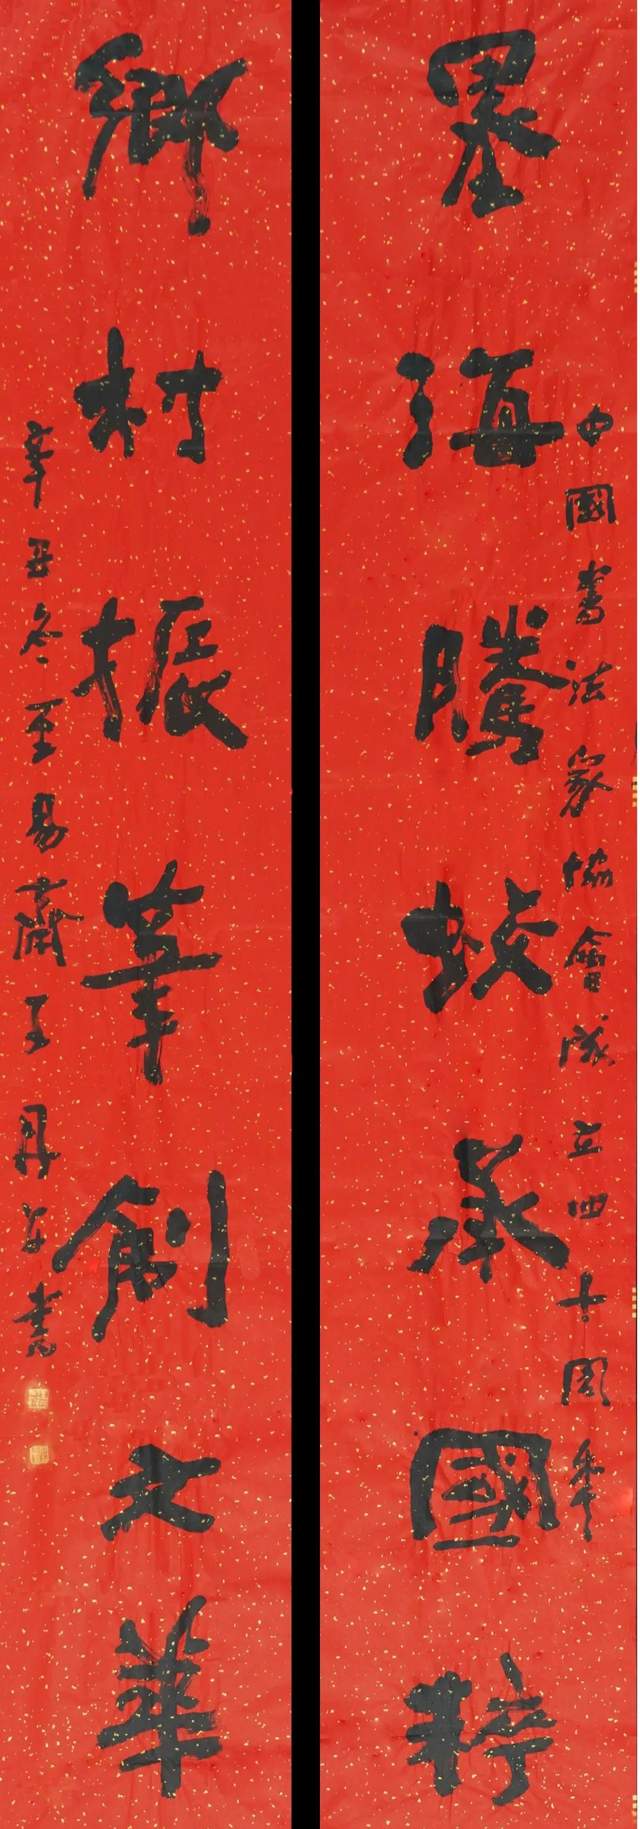 墨海騰蛟承國粹
中國書法家協會成立四十周年
鄉村振筆創文華
辛丑冬至易齋王丹書